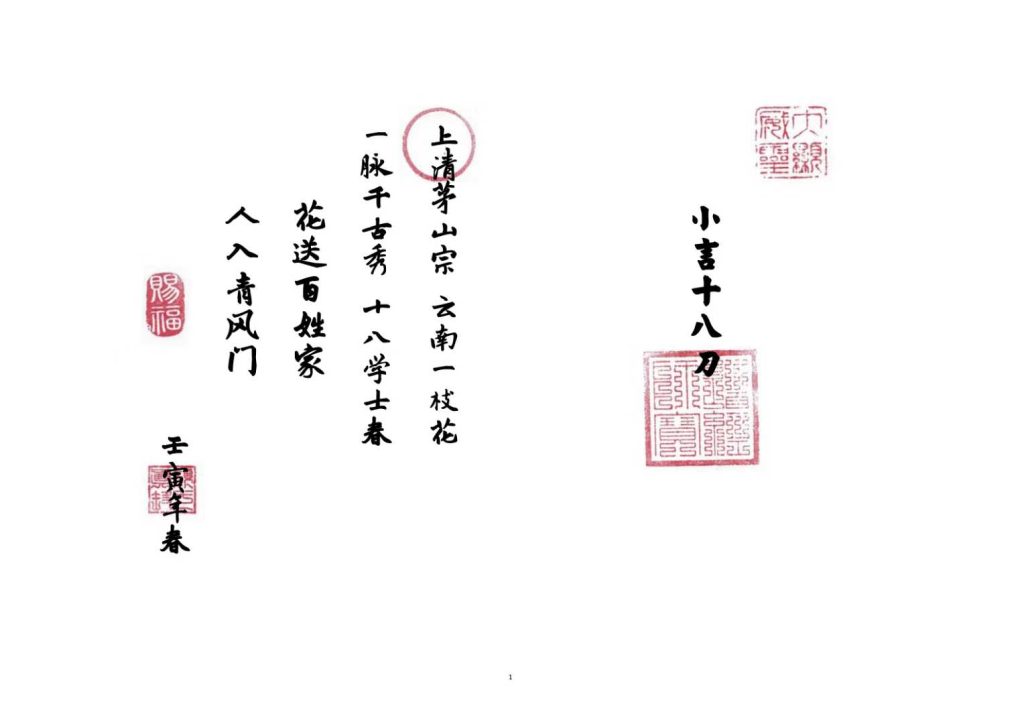 大顯威靈
小言十八刀
上清茅山宗 云南一枝花
一脉千古秀 十八学士春
花送百姓家
人入青风门
賜福
壬寅年春
1